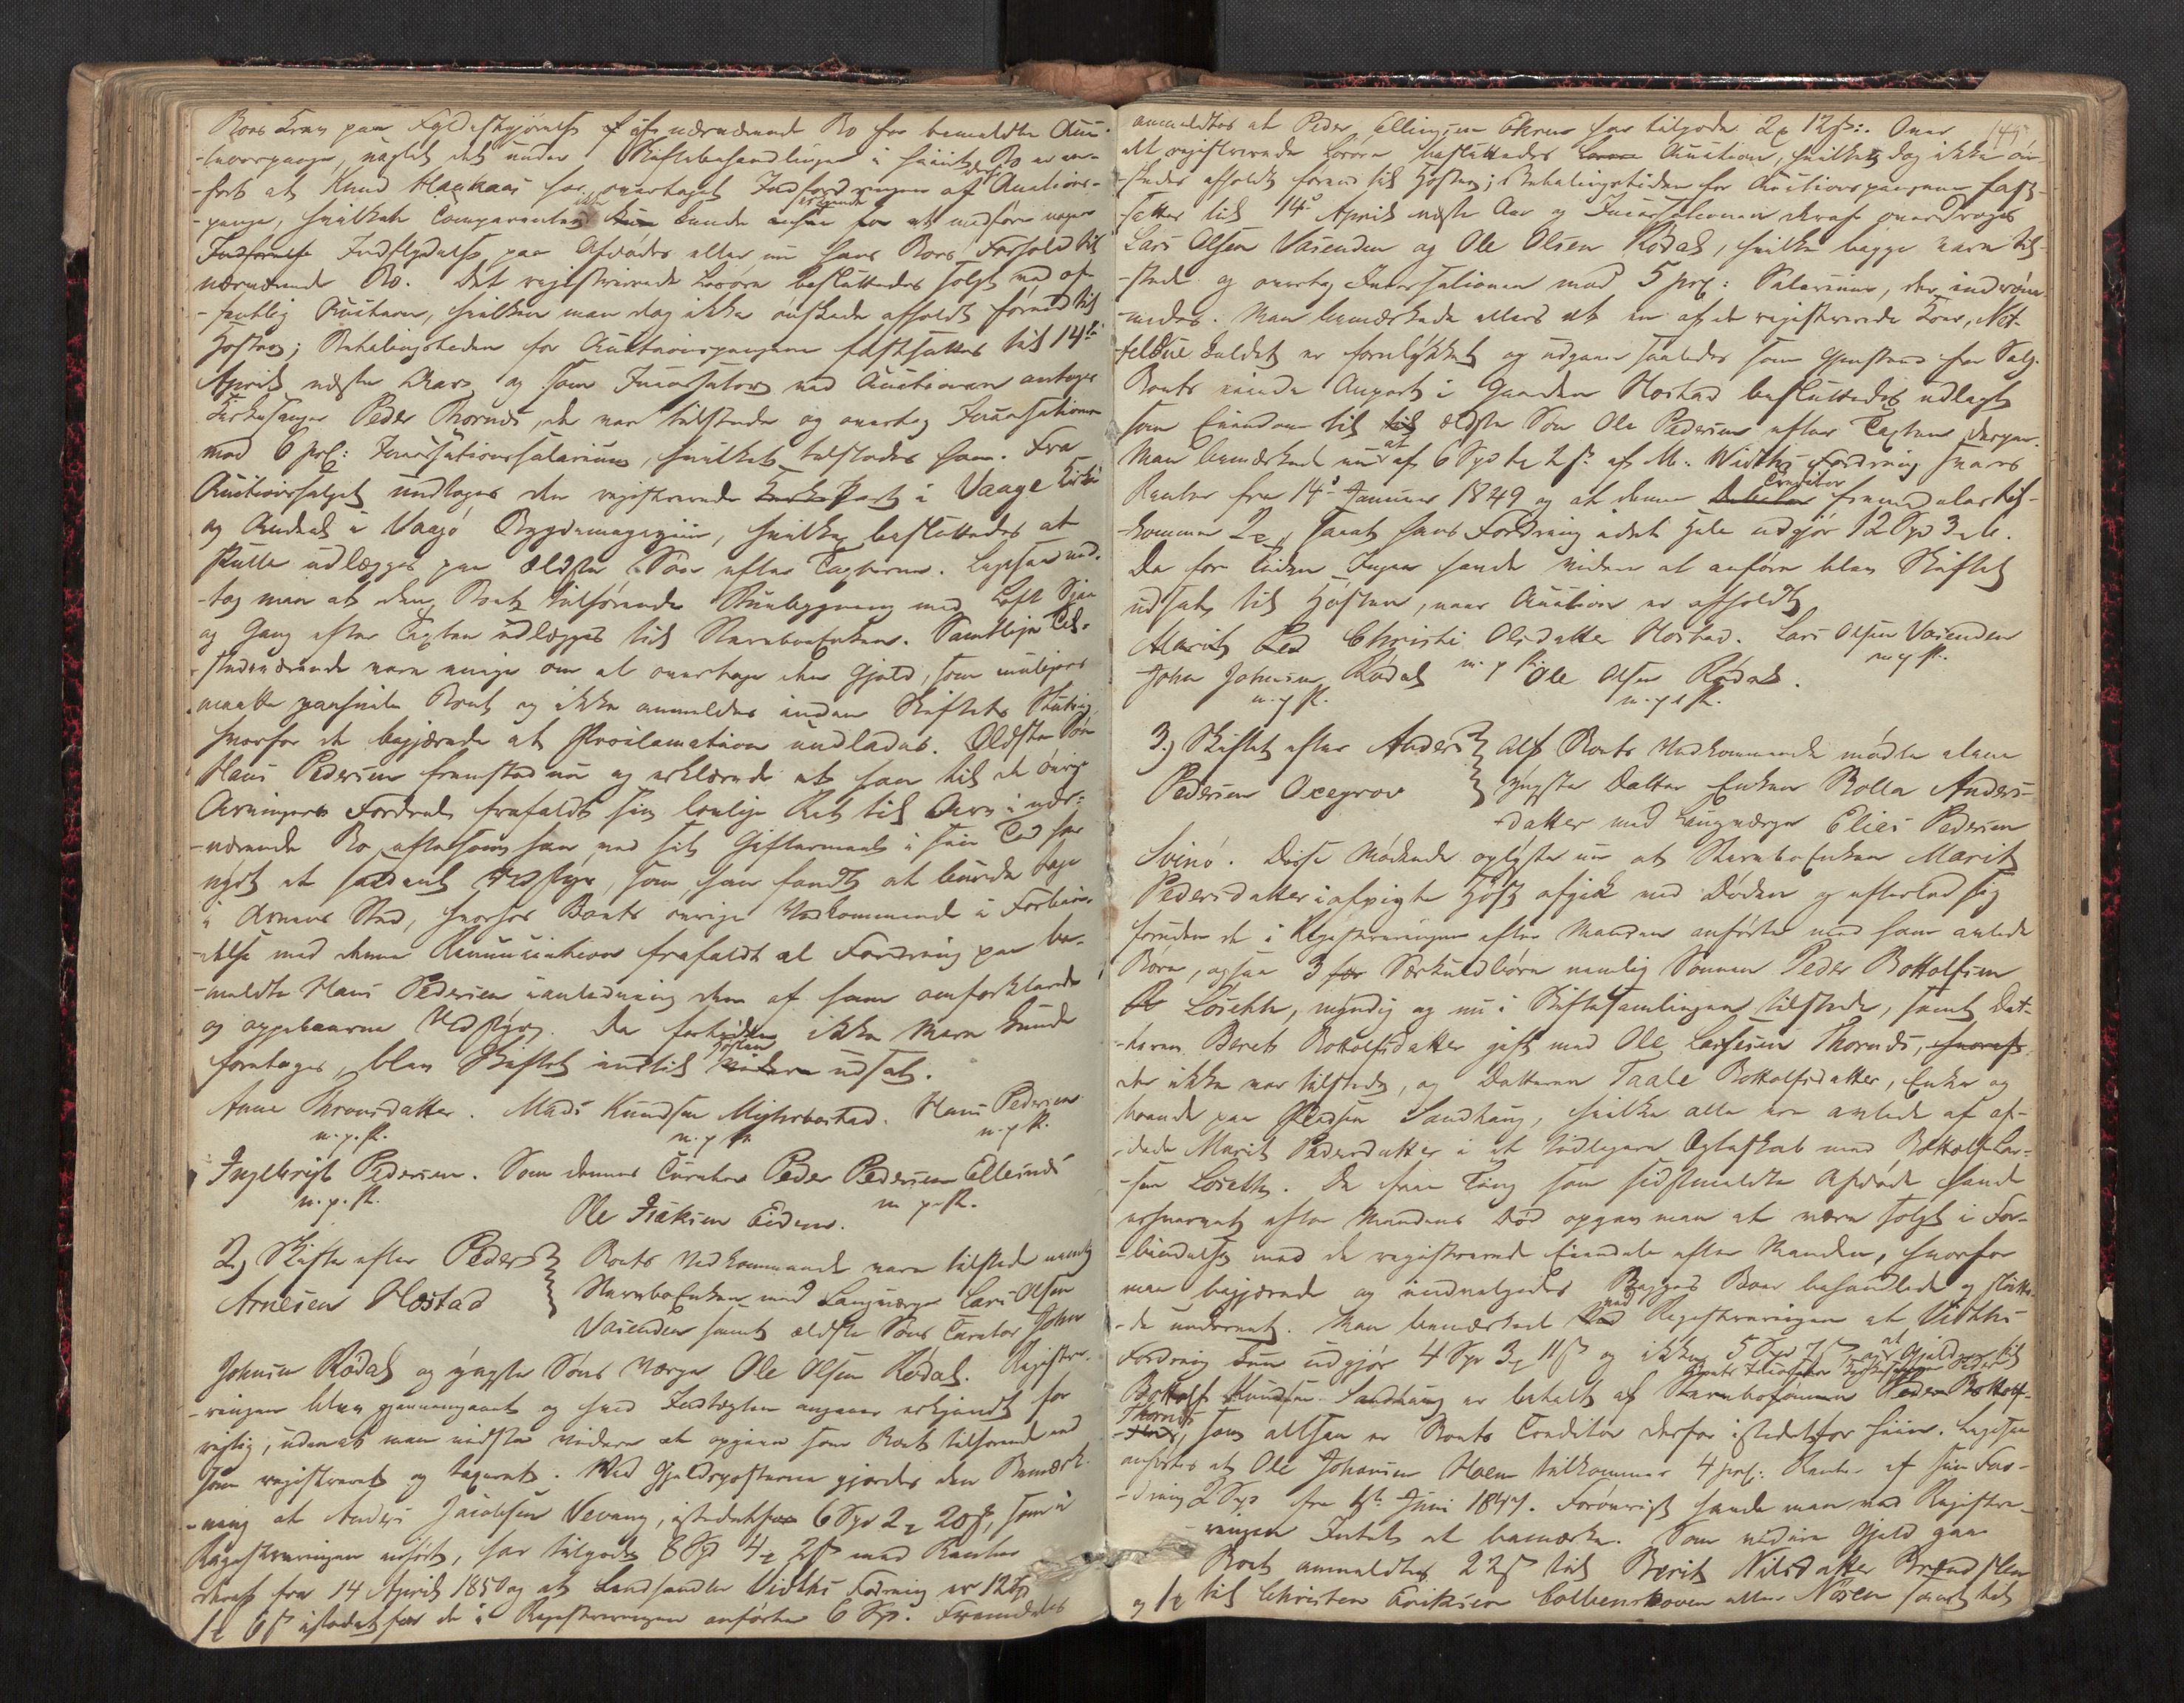 Boes Krav paa Fyldestgjørelse af nærværende Bo for bemeldte Auc-
-tionspenge, uagtet det under Skiftebehandlingen i hiint Bo er an-
-ført at Knud Haukaas har overtaget Indfordringen af disse Auctions-
-penge, hvilket Comparenten ikke kunde ansee for at medføre nogen
Indflydelse paa Afdødes eller nu hans Boes Forhold til
nærværende Bo. Det registrerede Løsøre besluttedes solgt ved of-
-fentlig Auction, hvilken man dog ikke ønskede afholdt førend til
Høsten; Betalingstiden for Auctionspengene fastsattes til 14de
April næste Aar, og som Incassator ved Auctionen antoges
Kirkesanger Peder Thornæs, der var tilstede og overtog Incassationen
mod 6 prC: Incassationssalarium, hvilket tilstodes ham. Fra
Auctionssalget undtoges den registrerede Part i Vaage Kirke
og Andeel i Vaagø Bygdemagazin, hvilke besluttedes at
skulle udlægges paa Ældste Søn efter Taxterne. Ligesaa ved-
-tog man at den Boet tilhørende Stuebygning med Loft Sju
og Gang efter Taxten udlægges til Stervboenken. Samtlige Til-
-stedeværende vare enige om at overtage den Gjæld, som muligens
maatte paahvile Boet og ikke anmeldes inden Skiftets Slutning,
hvorfor de begjærede at Proclamation undlades. Ældste Søn
Hans Pedersen fremstod nu og erklærede at han til de øvrige
Arvingers Fordeel frafaldt sin lovlige Ret til Arv i nær-
-værende Bo, eftersom han ved sit Giftermaal i sin Tid har
nydt et saadant Udstyr, som han fandt at burde tage
i Arvens Sted, hvorfor Boets øvrige Vedkommende i Forbin-
-delse med denne Renunciation frafaldt al Fordring paa be-
-meldte Hans Pedersen i anledning den af ham omforklarede
og oppebaarne Udstyr. Da fortiden ikke Mere kunde
foretages, blev Skiftet indtil Høsten udsat.
Anne Tronsdatter. Mads Knudsen Midtrbostad. Hans Pedersen
m. p. P. m. p. P. m. p. P.
Ingebrigt Pedersen. Som dennes Curator Peder Pedersen Ellevnæs
m. p. P. m. p. P.
Ole Isaksen Eidem.
2) Skifte efter Peder Boets Vedkommende vare tilstede nemlig
Arnesen Hostad Stervboenken med Laugværge Lars Olsen
Vasenden samt ældste Søns Curator John
Johnsen Rødal og yngste Søns Værge Ole Olsen Rødal. Registre-
-ringen blev gjennemgaaet og hvad Indtægten angaaer erkjendt for
rigtig, uden at man vidste videre at opgive som Boet tilhørende end
som registreret og taxeret. Ved Gjældsposterne gjordes den Bemærk-
-ning at Anders Jacobsen Vevang, istedetfor 6 Spd 2 20 ß, som i
Registreringen anført, har tilgode 8 Spd 4 2 ß med Renter
deraf fra 14 April 1850 og at Landhandler Vidths Fordring er 12 Spd
1 6 ß istedetfor de i Registreringen anførte 6 Spd. Fremdeles
149
anmeldtes at Peder Ellingsen Ekren har tilgode 2 12 ß:. Over
det registrerede Løsøre besluttedes Auction, hvilken dog ikke øn-
-skedes afholdt førend til Høsten; Betalingstiden for Auctionspengene fast-
-sattes til 14de April næste Aar og Incassationen deraf overdroges
Lars Olsen Vasenden og Ole Olsen Rødal, hvilke begge vare til-
-stede og overtog Incassationen mod 5 prC: Salarium, der indrøm-
-medes. Man bemærkede ellers at en af de registrerede Køer, Net-
-felduse kaldet er forulykket og udgaaer saaledes som Gjenstand for Salg.
Boets eiende Anpart i Gaarden Hostad besluttedes udlagt
som Eiendom til ældste Søn Ole Pedersen efter Taxten derpaa.
Man bemærkede nu at af 6 Spd 1 2 ß af M. Widths Fordring svares
Renter fra 14de Januar 1849 og at denne Creditor fremdeles til-
-kommer 2 , saaat hans Fordring i det Hele udgjør 12 Spd 3 .
Da for Tiden Ingen havde videre at anføre blev Skiftet
udsat til Høsten, naar Auction er afholdt
Marit Christi Olsdatter Hostad. Lars Olsen Vasenden
John Johnsen Rødal m. p. P. Ole Olsen Rødal. m. p. P.
m. p. P. m. p. P.
3) Skiftet efter Anders Af Boets Vedkommende mødte alene
Pedersen Oxegrov yngste Datter Enken Rolla Anders-
-datter med Laugværge Elias Pedersen
Svinø. Disse Mødende oplyste nu at Stervboenken Marit
Pedersdatter i afvigte Høst afgik ved Døden og efterlod sig
foruden de i Registreringen efter Manden anførte med ham avlede
Børn, ogsaa 3 Særkuldbørn nemlig Sønnen Peder Bottolfsen
Løseth, myndig og nu i Skiftesamlingen tilstede, samt Dat-
-teren Berit Bottolfsdatter gift med Ole Larsen Thornæs,
der ikke var tilstede, og Datteren Taale Bottolfsdatter, Enke og
boende paa Pladsen Sandhaug, hvilke alle ere avlede af af-
-døde Marit Pedersdatter i et tidligere Ægteskab med Bottolf Lar-
-sen Løseth. De faae Ting som sidstmeldte Afdøde havde
erhvervet efter Mandens Død opgav man at være solgt i For-
-bindelse med de registrerede Eiendele efter Manden, hvorfor
man begjærede og indvilgedes Begges Boer behandlede og slutte-
-de underet. Man bemærkede ved Registreringen at Vidths
Fordring kun udgjør 4 Spd 3 11 ß og ikke 5 Spd 7 ß, at Gjælden til
Bottolf Knudsen Sandhaug er betalt af Boets Incassator Kirkesanger Peder
Thornæs, som altsaa er Boets Creditor derfor istedetfor hiin. Ligesaa
anførtes at Ole Johnsen Hoem tilkommer 4 prC: Rente af sin For-
-dring 2 Spd fra Juni 1847. Forøvrigt havde man ved Registre-
-ringen Intet at bemærke. Som videre Gjæld paa
Boet anmeldtes 22 ß til Berit Nilsdatter
og 1 til Christen Eriksen eller Nøsen saavel til